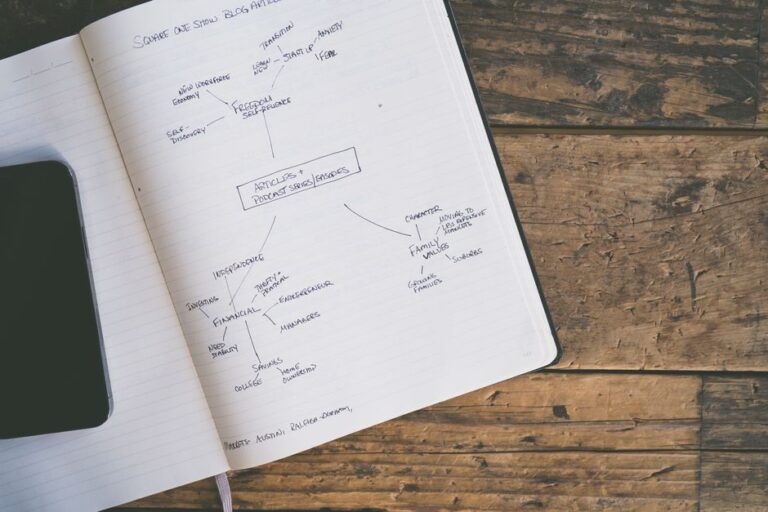 SQUARE ONE SHOW BLOG ARTICLE
TRANSITION
ANXIETY
LEARN
NEW
START UP
FEAR
NEW WORKFORCE
ECONOMY
FREEDOM
SELF-RELIENCE
SELF-
DISCOVERY
ARTICLES +
PODCAST SERIES/EPISODES
CHARACTER
MOVING TO
LESS EXPENSIVE
MARKETS
FAMILY
VALUES
SUBURBS
GROWING
FAMILIES
INDEPENDENCE
THRIFTY +
PRACTICAL
INVESTING
ENTREPRENEUR
FINANCIAL
MANAGERS
NEED
STABILITY
SAVINGS
COLLEGE
HOME
OWNERSHIP
MARKETS - AUSTIN, RALEIGH-DURHAM,